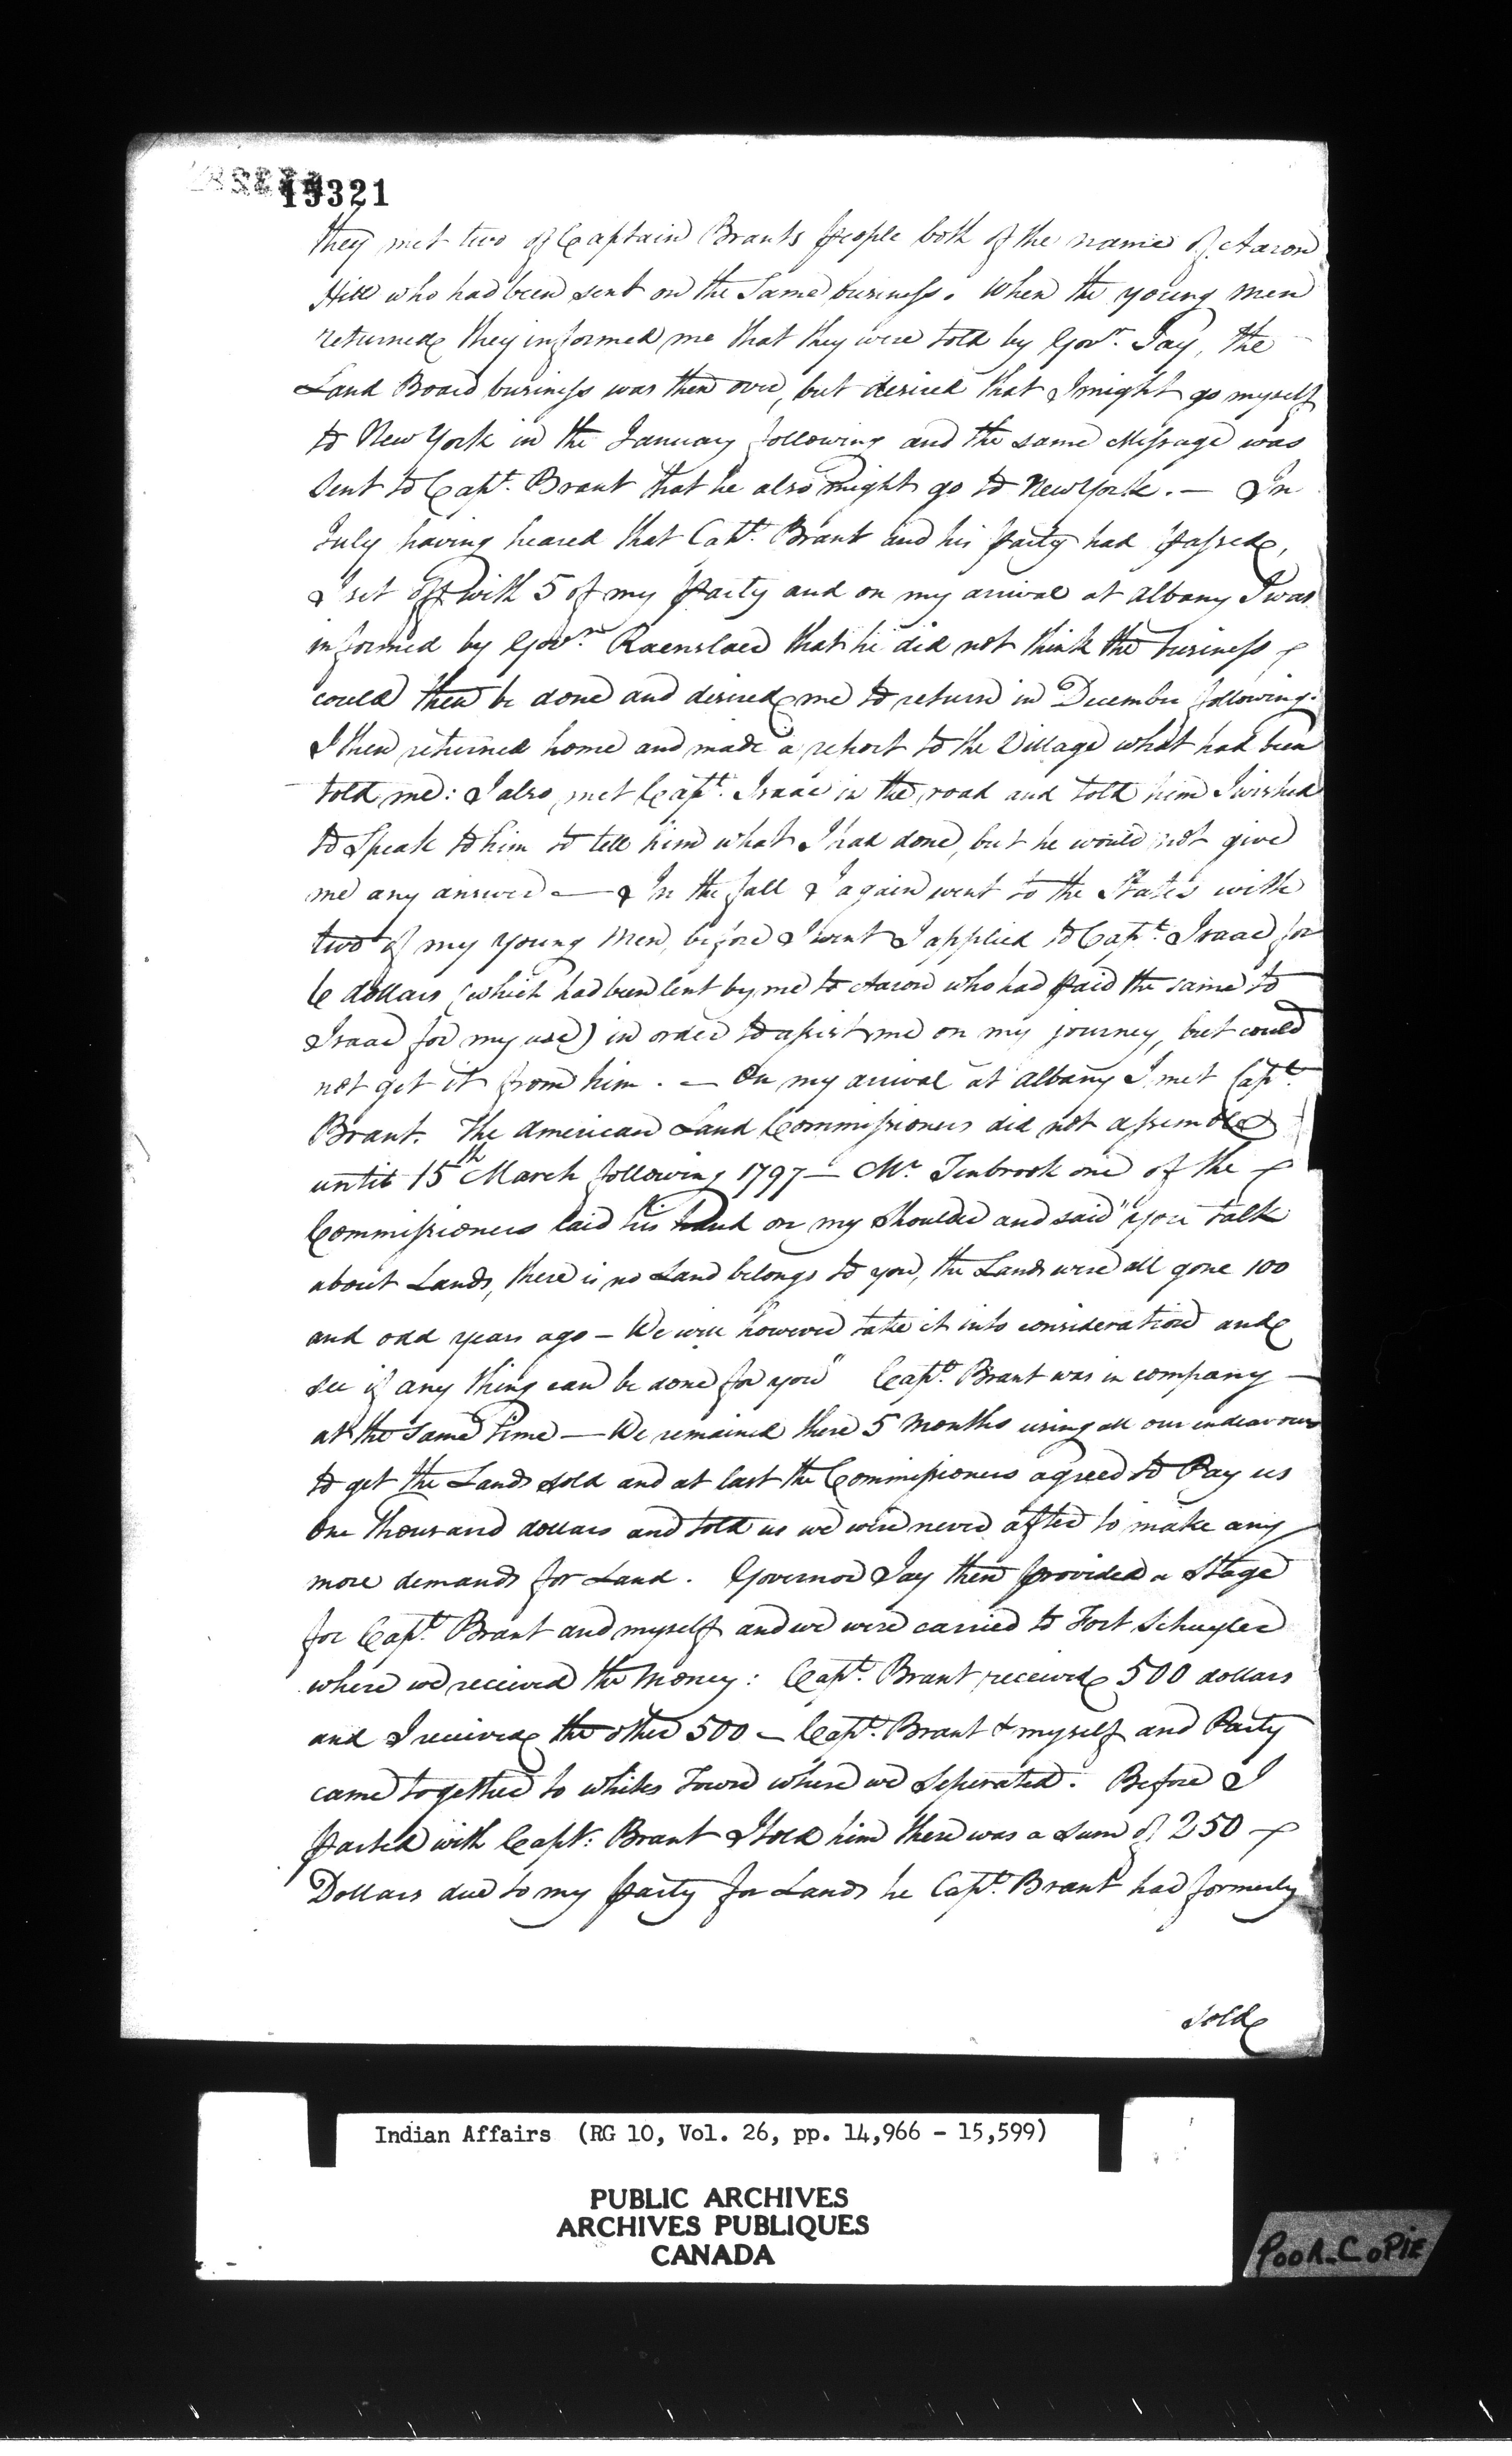 15321
they met two of Captain Brants people both of the name of Aaron
Hill who had been sent on the same business. When the young men
returned they informed me that they were told by Govr. Jay, the
Land Board business was then over, but desired that I might go myself
to New York in the January following and the same Message was
sent to Capt. Brant that he also might go to New York. — In
July having heared that Capt. Brant and his party had passed,
I set off with 5 of my party and on my arrival at Albany I was
informed by Govr. Raenslaer that he did not think the business
could then be done and desired me to return in December following.
I then returned home and made a report to the Village what had been
told me: I also met Capt. Isaac in the road and told him I wished
to Speak to him to tell him what I had done, but he would not give
me any answer — In the fall I again went to the States with
two of my young Men, before I went I applied to Capt. Isaac for
6 dollars (which had been lent by me to Aaron who had paid the same to
Isaac for my use) in order to assist me on my journey, but could
not get it from him. — On my arrival at Albany I met Capt.
Brant. The American Land Commissioners did not assemble
until 15th March following 1797 — Mr. Tenbrook one of the
Commissioners laid his hand on my shoulder and said "you talk
about Lands, there is no Land belongs to you, the Lands were all gone 100
and odd years ago — We will however take it into consideration and
see if any thing can be done for you" Capt. Brant was in company —
at the same time — We remained there 5 Months using all our endeavours
to get the Lands sold and at last the Commissioners agreed to Pay us
One thousand dollars and told us we were never after to make any
more demands for Land. Governor Jay then provided a Stage
for Capt. Brant and myself and we were carried to Fort Schuyler
where we received the money: Capt. Brant received 500 dollars
and I received the other 500 — Capt. Brant & myself and Party
came together to whites Town where we seperated. Before I
parted with Capt: Brant I told him there was a sum of 250
Dollars due to my party for Lands he Capt. Brant had formerly
sold
Indian Affairs (RG 10, Vol. 26, pp. 14,966 - 15,599)
PUBLIC ARCHIVES
ARCHIVES PUBLIQUES
CANADA
POOR COPIE